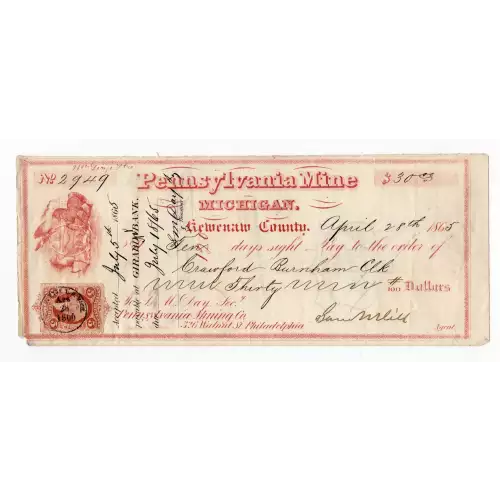 No 2949
$30 00
Pennsylvania Mine
MICHIGAN.
Kewenaw County. April 28th 1865
Ten days sight Pay to the order of
Crawford Burnham Clk
Thirty Dollars
To S. M. Day, Sec.
Pennsylvania Mining Co.
Walnut St. Philadelphia
Saml W Hill
Agent
accepted July 5th 1865
payable at GIRARD BANK.
due July 18/65
S M Day